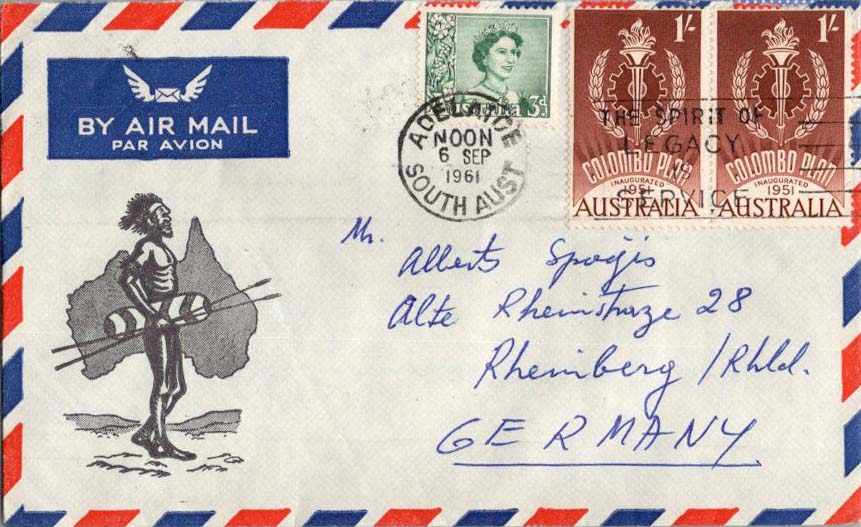 BY AIR MAIL
PAR AVION
3d
ADELAIDE
NOON
6 SEP
1961
SOUTH AUST
1/-
COLOMBO PLAN
INAUGURATED
1951
AUSTRALIA
1/-
COLOMBO PLAN
INAUGURATED
1951
AUSTRALIA
THE SPIRIT OF
LEGACY
SERVICE
Mr.
Alberts Spogis
Alte Rheinstraze 28
Rheinberg / Rhld.
GERMANY